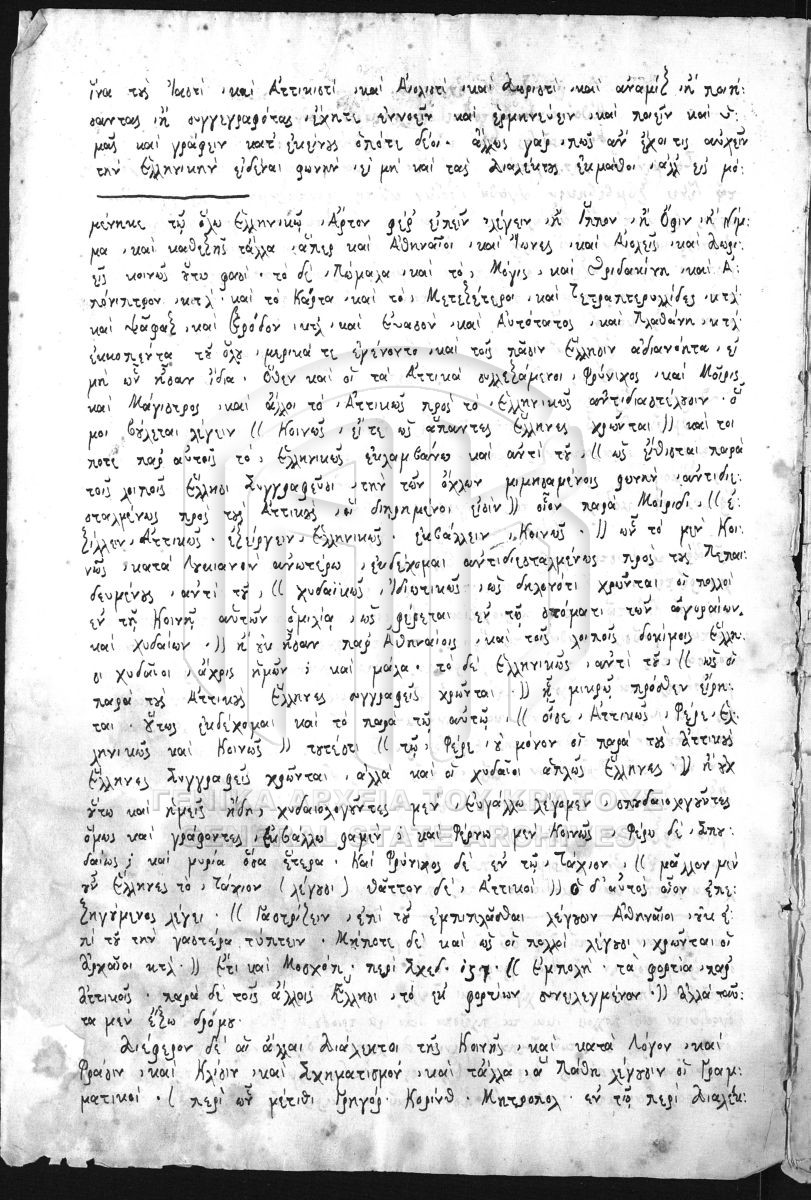 ἵνα τοὺς Ἰαστὶ, καὶ Ἀττικιστὶ, καὶ Αἰολιστὶ, καὶ Δωριστὶ, καὶ ἀναμὶξ ἢ ποιή:
σαντας, ἢ συγγεγραφότας, ἔχητε ἐννοεῖν καὶ ἑρμηνεύειν, καὶ ποιεῖν καὶ ὑ:
μᾶς καὶ γράφειν κατ' ἐκείνους ὁπότε δέοι. ἄλλως γὰρ, πῶς ἂν ἔχοι τις αὐχεῖν
τὴν Ἑλληνικὴν εἰδέναι φωνὴν, εἰ μὴ καὶ τὰς Διαλέκτους ἐκμάθοι, ἀλλ' εἰς μό:
μένηκε τῷ ὅλῳ Ἑλληνικῷ, Ἄρτον φέρ' εἰπεῖν λέγειν, ἢ Ἵππον, ἢ Ὄφιν, ἢ Νῆμ:
μα, καὶ καθεξῆς τἄλλα, ἅπερ καὶ Ἀθηναῖοι, καὶ Ἴωνες, καὶ Αἰολεῖς, καὶ Δωρι:
εῖς κοινῶς οὕτω φασί. τὸ δὲ, Πώμαλα, καὶ τὸ, Μόγις, καὶ Θριδακίνη, καὶ Ἀ:
πόνιπτρον, κτλ. καὶ τὸ Κάρτα, καὶ τὸ, Μετεξέτεροι, καὶ Τετραπτερυλλίδες, κτλ.
καὶ Ψᾶφαξ, καὶ Βρόδον, κτλ. καὶ Εὔαδον, καὶ Αὐτότατος, καὶ Πλαθάνη, κτλ.
ἐκκοπέντα τοῦ ὅλου, μερικά τε ἐγένοντο, καὶ τοῖς πᾶσιν Ἕλλησιν ἀδιανόητα, εἰ
μὴ ὧν ἦσαν ἴδια. Ὅθεν καὶ οἱ τὰ Ἀττικὰ συλλεξάμενοι, Φρύνιχος, καὶ Μοῖρις
καὶ Μάγιστρος, καὶ ἄλλοι τὸ, Ἀττικῶς πρὸς τὸ, Ἑλληνικῶς ἀντιδιαστέλλουσιν. ὅ
μοι βούλεται λέγειν (( Κοινῶς, εἴτε ὡς ἅπαντες Ἕλληνες χρῶνται )) καί τοι
ποτε παρ' αὐτοῖς τὸ, Ἑλληνικῶς ἐκλαμβάνω καὶ ἀντὶ τοῦ, (( ὡς εἴθισται παρὰ
τοῖς λοιποῖς Ἕλλησι Συγγραφεῦσι, τὴν τῶν ὄχλων μιμησαμένοις φωνὴν, ἀντιδιε:
σταλμένως πρὸς τοὺς Ἀττικοὺς, ᾗ διῃρημένοι εἰσὶν )) οἷον παρὰ Μοίριδι, (( ἐ:
ξίλλειν, Ἀττικῶς. ἐξείργειν, Ἑλληνικῶς. ἐκβάλλειν, Κοινῶς. )) ὧν τὸ μὲν Κοι:
νῶς, κατὰ Λουκιανὸν ἀνωτέρω, ἐκδέχομαι ἀντιδιεσταλμένως πρὸς τοὺς Πεπαι:
δευμένους, ἀντὶ τοῦ, (( χυδαϊκῶς, Ἰδιωτικῶς, ὡς δηλονότι χρῶνται οἱ πολλοὶ
ἐν τῇ Κοινῇ αὐτῶν ὁμιλίᾳ, ὡς φέρεται ἐν τῷ στόματι τῶν ἀγοραίων,
καὶ χυδαίων. )) ἢ οὐκ ἦσαν παρ' Ἀθηναίοις, καὶ τοῖς λοιποῖς δοκίμοις Ἕλλη:
σι χυδαῖοι, ἄχρις ἡμῶν; καὶ μάλα. τὸ δὲ Ἑλληνικῶς, ἀντὶ τοῦ, (( ὡς οἱ
παρὰ τοὺς Ἀττικοὺς Ἕλληνες συγγραφεῖς χρῶνται. )) ᾗ μικρῷ πρόσθεν εἴρη:
ται. οὕτως ἐκδέχομαι καὶ τὸ παρὰ τῷ αὐτῷ, (( οἶσε, Ἀττικῶς, Φέρε, Ἑλ:
ληνικῶς καὶ Κοινῶς )) τουτέστι (( τῷ, Φέρε, οὐ μόνον οἱ παρὰ τοὺς Ἀττικοὺς
Ἕλληνες Συγγραφεῖς χρῶνται, ἀλλὰ καὶ οἱ χυδαῖοι ἁπλῶς Ἕλληνες. )) ἢ οὐχ
οὕτω καὶ ἡμεῖς ἤδη, χυδαιολογοῦντες μὲν, Εὐγάλλω λέγομεν, σπουδαιολογοῦντες
ὅμως καὶ γράφοντες, Ἐκβάλλω φαμέν; καὶ Φέρνω μὲν Κοινῶς, Φέρω δὲ, Σπου:
δαίως; καὶ μυρία ὅσα ἕτερα. Καὶ Φρύνιχος δὲ ἐν τῷ, Τάχιον, (( μᾶλλον μὲν
οὖν Ἕλληνες τὸ, Τάχιον (λέγουσι) Θᾶττον δὲ, Ἀττικοί )) Ὁ δ' αὐτὸς οἷον ἐπε:
ξηγούμενος λέγει. (( Γαστρίζειν, ἐπὶ τοῦ ἐμπίπλασθαι λέγουσιν Ἀθηναῖοι, οὐκ ἐ:
πὶ τοῦ τὴν γαστέρα τύπτειν. Μήποτε δὲ καὶ ὡς οἱ πολλοὶ λέγουσι, χρῶνται οἱ
Ἀρχαῖοι κτλ. )) Ἔτι καὶ Μοσχόπ. περὶ Σχεδ. (( Ἐμπολὴ. τὰ φορτία, παρ'
Ἀττικοῖς. παρὰ δὲ τοῖς ἄλλοις Ἕλλησι, τὸ ἐκ φορτίων συνειλεγμένον. )) Ἀλλὰ ταῦ:
τα μὲν ἔξω δρόμου.
Διέφερον δὲ αἱ ἄλλαι Διάλεκτοι τῆς Κοινῆς, καὶ κατὰ Λόγον, καὶ
Φράσιν, καὶ Κλίσιν, καὶ Σχηματισμὸν, καὶ τἄλλα, ἃ Πάθη λέγουσιν οἱ Γραμ:
ματικοί. ( περὶ ὧν μέτιθι Γρηγόρ. Κορίνθ. Μητροπολ. ἐν τῷ περὶ Διαλέκ:
ΓΕΝΙΚΑ ΑΡΧΕΙΑ ΤΟΥ ΚΡΑΤΟΥΣ
GENERAL STATE ARCHIVES